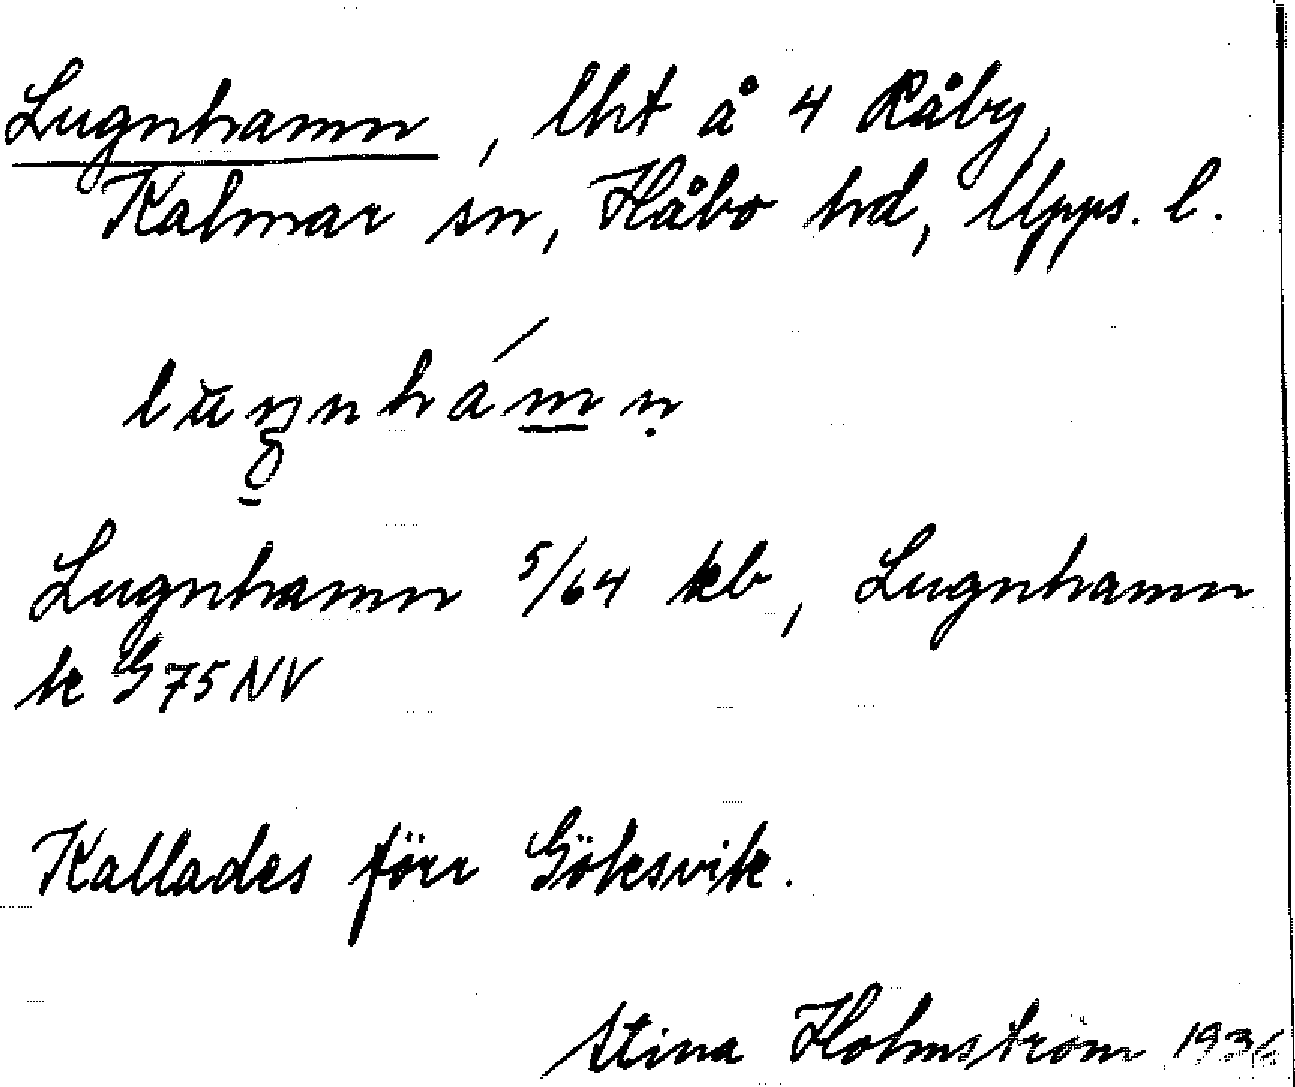 Lugnhamn, lht å 4 Råby,
Kalmar sn, Håbo hd, Upps. l.
Lugnhamn 5/64 kb, Lugnhamn
k G75NV
Kallades förr Göksvik.
Stina Holmström